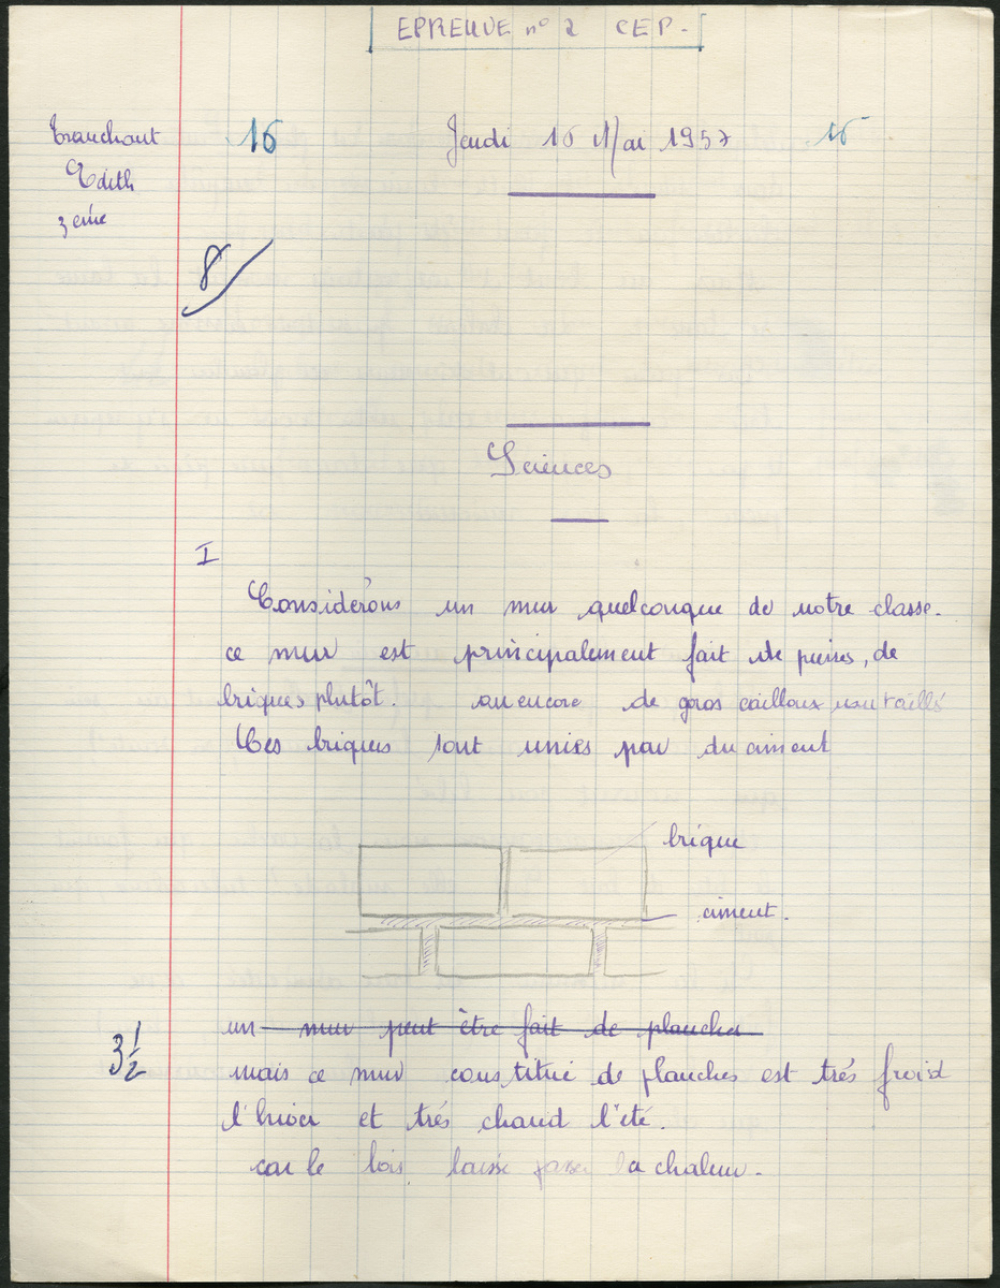 EPREUVE n° 2 CEP.
Tranchant 16 Jeudi 16 Mai 1957 16
Edith
3eme
8
Sciences
I
Considérons un mur quelconque de notre classe.
ce mur est principalement fait de pierres, de
briques plutôt. ou encore de gros cailloux non taillés
Ces briques sont unies par du ciment
brique
ciment.
un mur peut être fait de planches
3 1/2
mais ce mur constitué de planches est trés froid
l'hiver et trés chaud l'été.
car le bois laisse passer la chaleur.